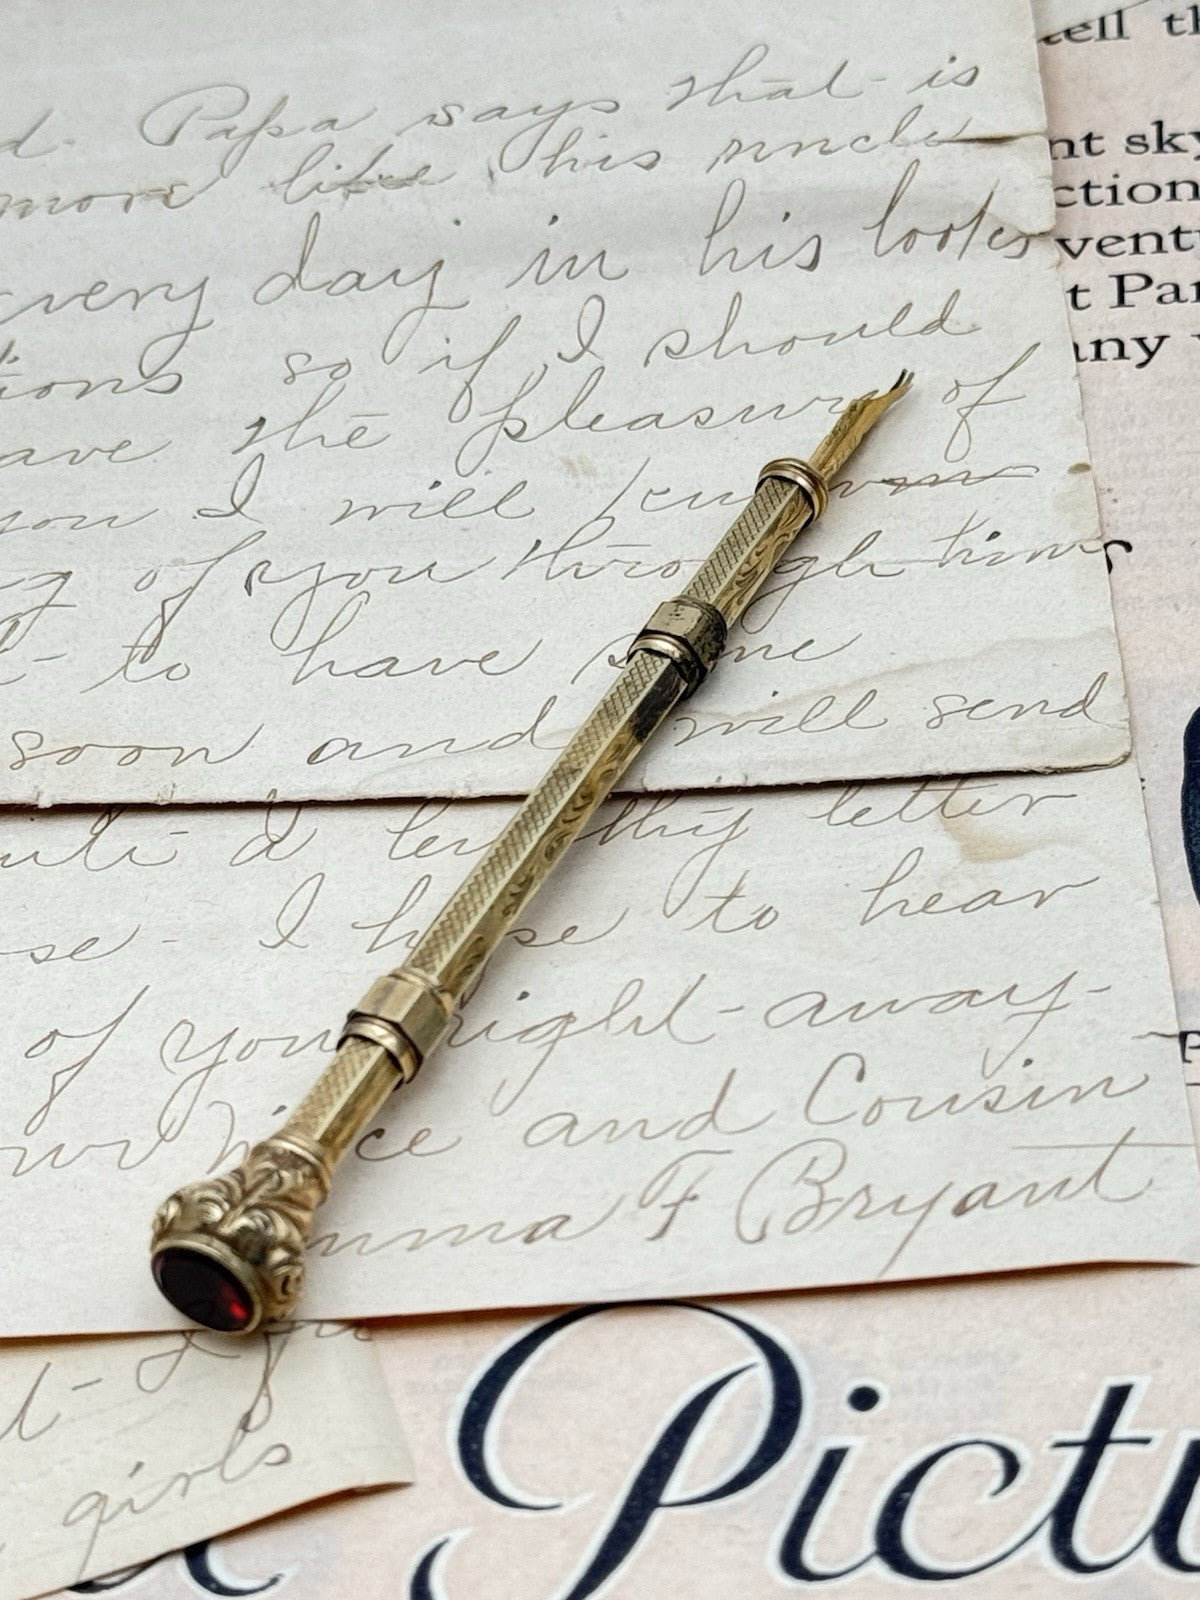 d. Papa says that is
more like his uncle
every day in his looks
tions so if I should
ave the pleasure of
you I will
g of you through time
to have
soon and will send
I lengthy letter
se - I hope to hear
of you right-away-
our Niece and Cousin
mma F Bryant
girls
tell th
nt sky
ction
ventu
t Par
any
Pictu